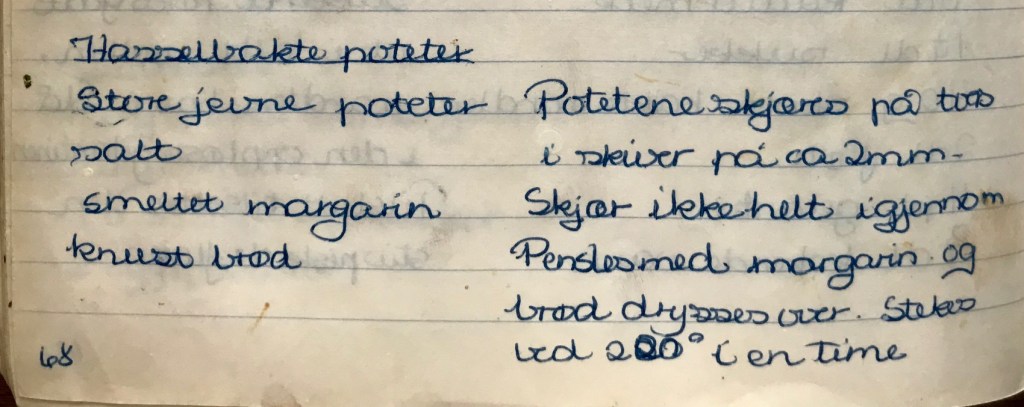 Hasselbakte poteter
Store jevne poteter
salt
smeltet margarin
knust brød
Potetene skjæres på tvers
i skiver på ca 2mm-
Skjær ikke helt igjennom
Pensles med margarin og
brød drysses over. Stekes
ved 200° i en time
68